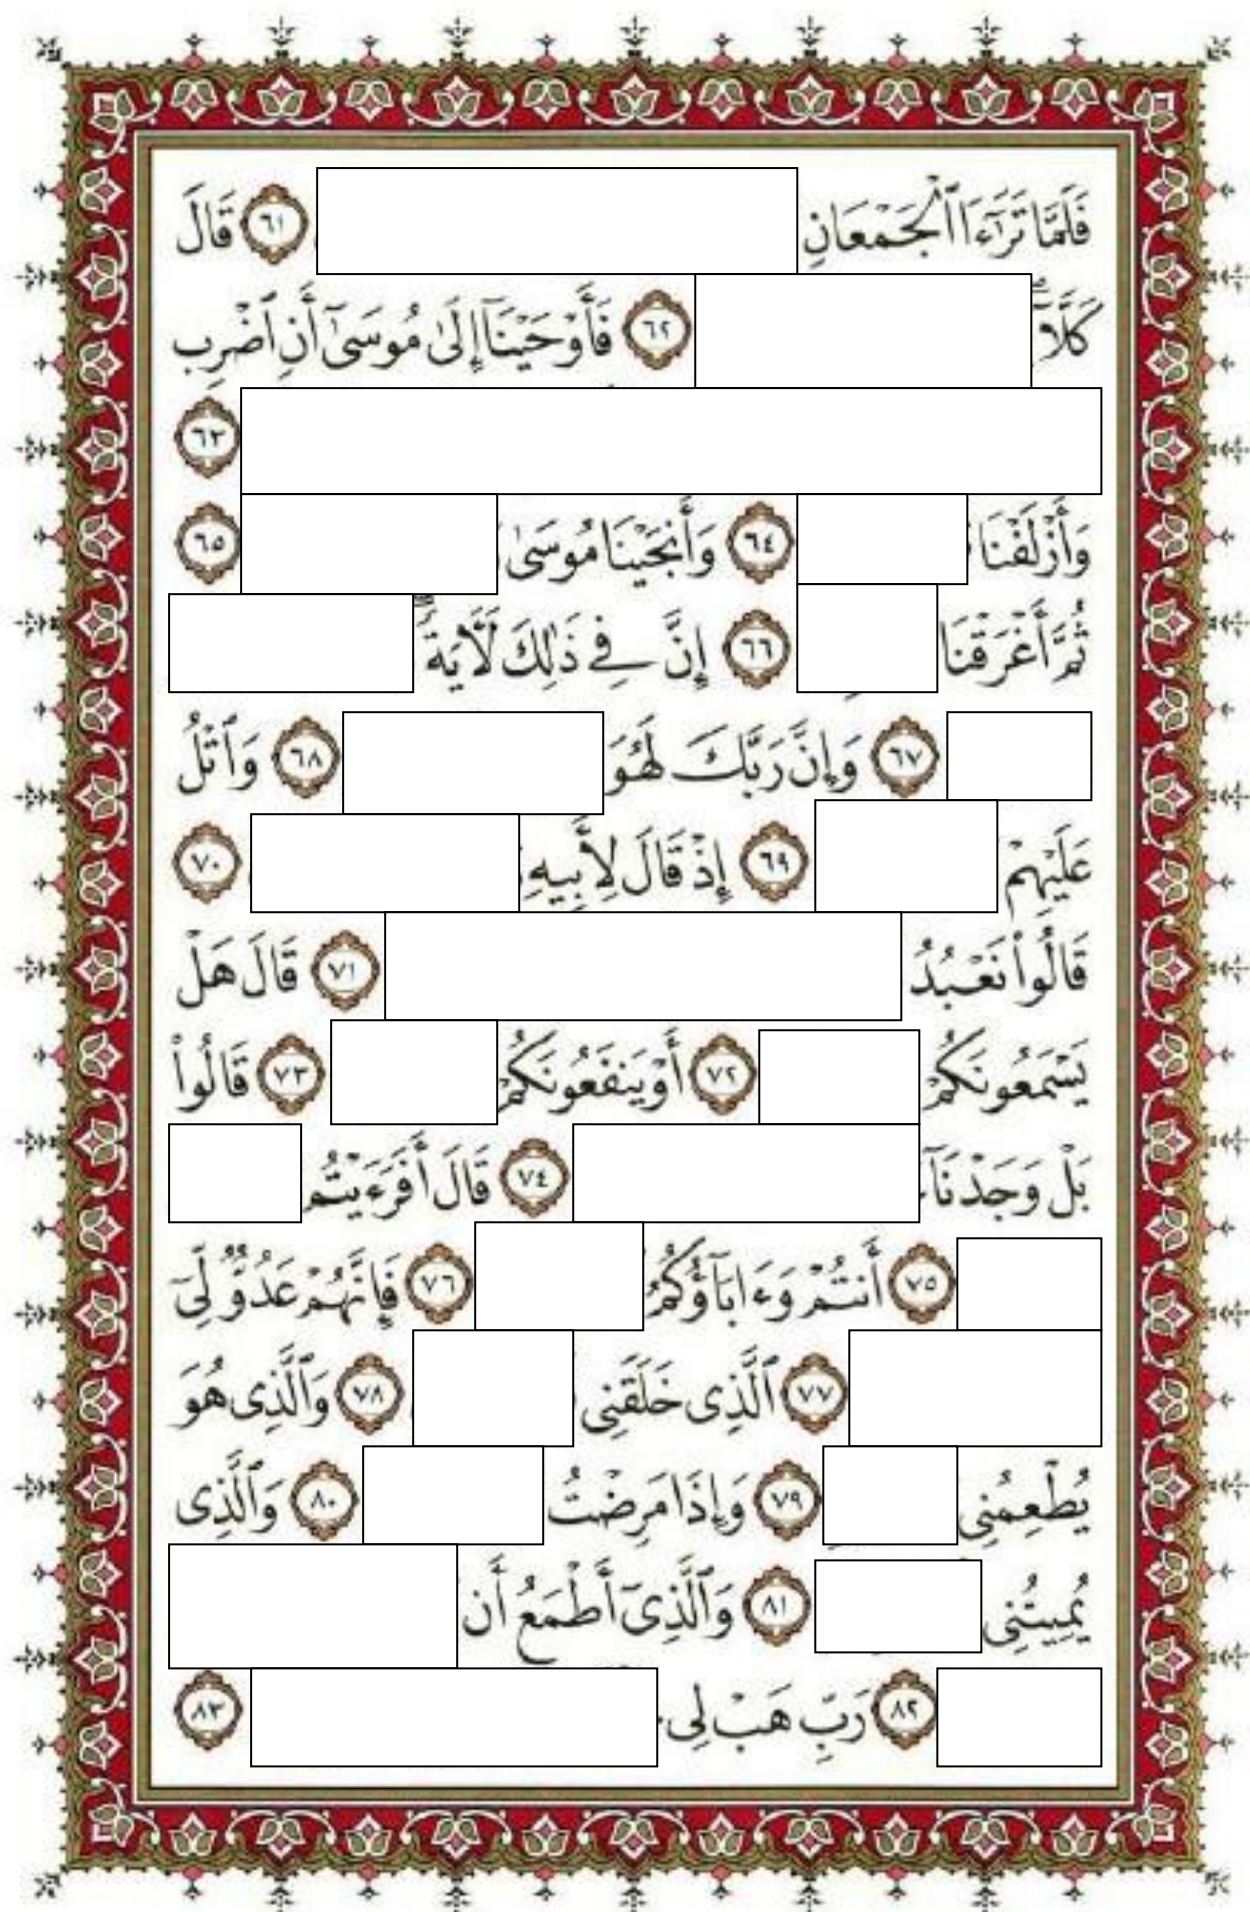 فَلَمَّا تَرَٰٓءَا ٱلْجَمْعَانِ ٦١ قَالَ
كَلَّآ ٦٢ فَأَوْحَيْنَآ إِلَىٰ مُوسَىٰٓ أَنِ ٱضْرِب
٦٣
وَأَزْلَفْنَا ٦٤ وَأَنجَيْنَا مُوسَىٰ ٦٥
ثُمَّ أَغْرَقْنَا ٦٦ إِنَّ فِى ذَٰلِكَ لَـَٔايَةً
٦٧ وَإِنَّ رَبَّكَ لَهُوَ ٦٨ وَٱتْلُ
عَلَيْهِمْ ٦٩ إِذْ قَالَ لِأَبِيهِ ٧٠
قَالُوا۟ نَعْبُدُ ٧١ قَالَ هَلْ
يَسْمَعُونَكُمْ ٧٢ أَوْ يَنفَعُونَكُمْ ٧٣ قَالُوا۟
بَلْ وَجَدْنَآ ٧٤ قَالَ أَفَرَءَيْتُم
٧٥ أَنتُمْ وَءَابَآؤُكُمُ ٧٦ فَإِنَّهُمْ عَدُوٌّ لِّىٓ
٧٧ ٱلَّذِى خَلَقَنِى ٧٨ وَٱلَّذِى هُوَ
يُطْعِمُنِى ٧٩ وَإِذَا مَرِضْتُ ٨٠ وَٱلَّذِى
يُمِيتُنِى ٨١ وَٱلَّذِىٓ أَطْمَعُ أَن
٨٢ رَبِّ هَبْ لِى ٨٣